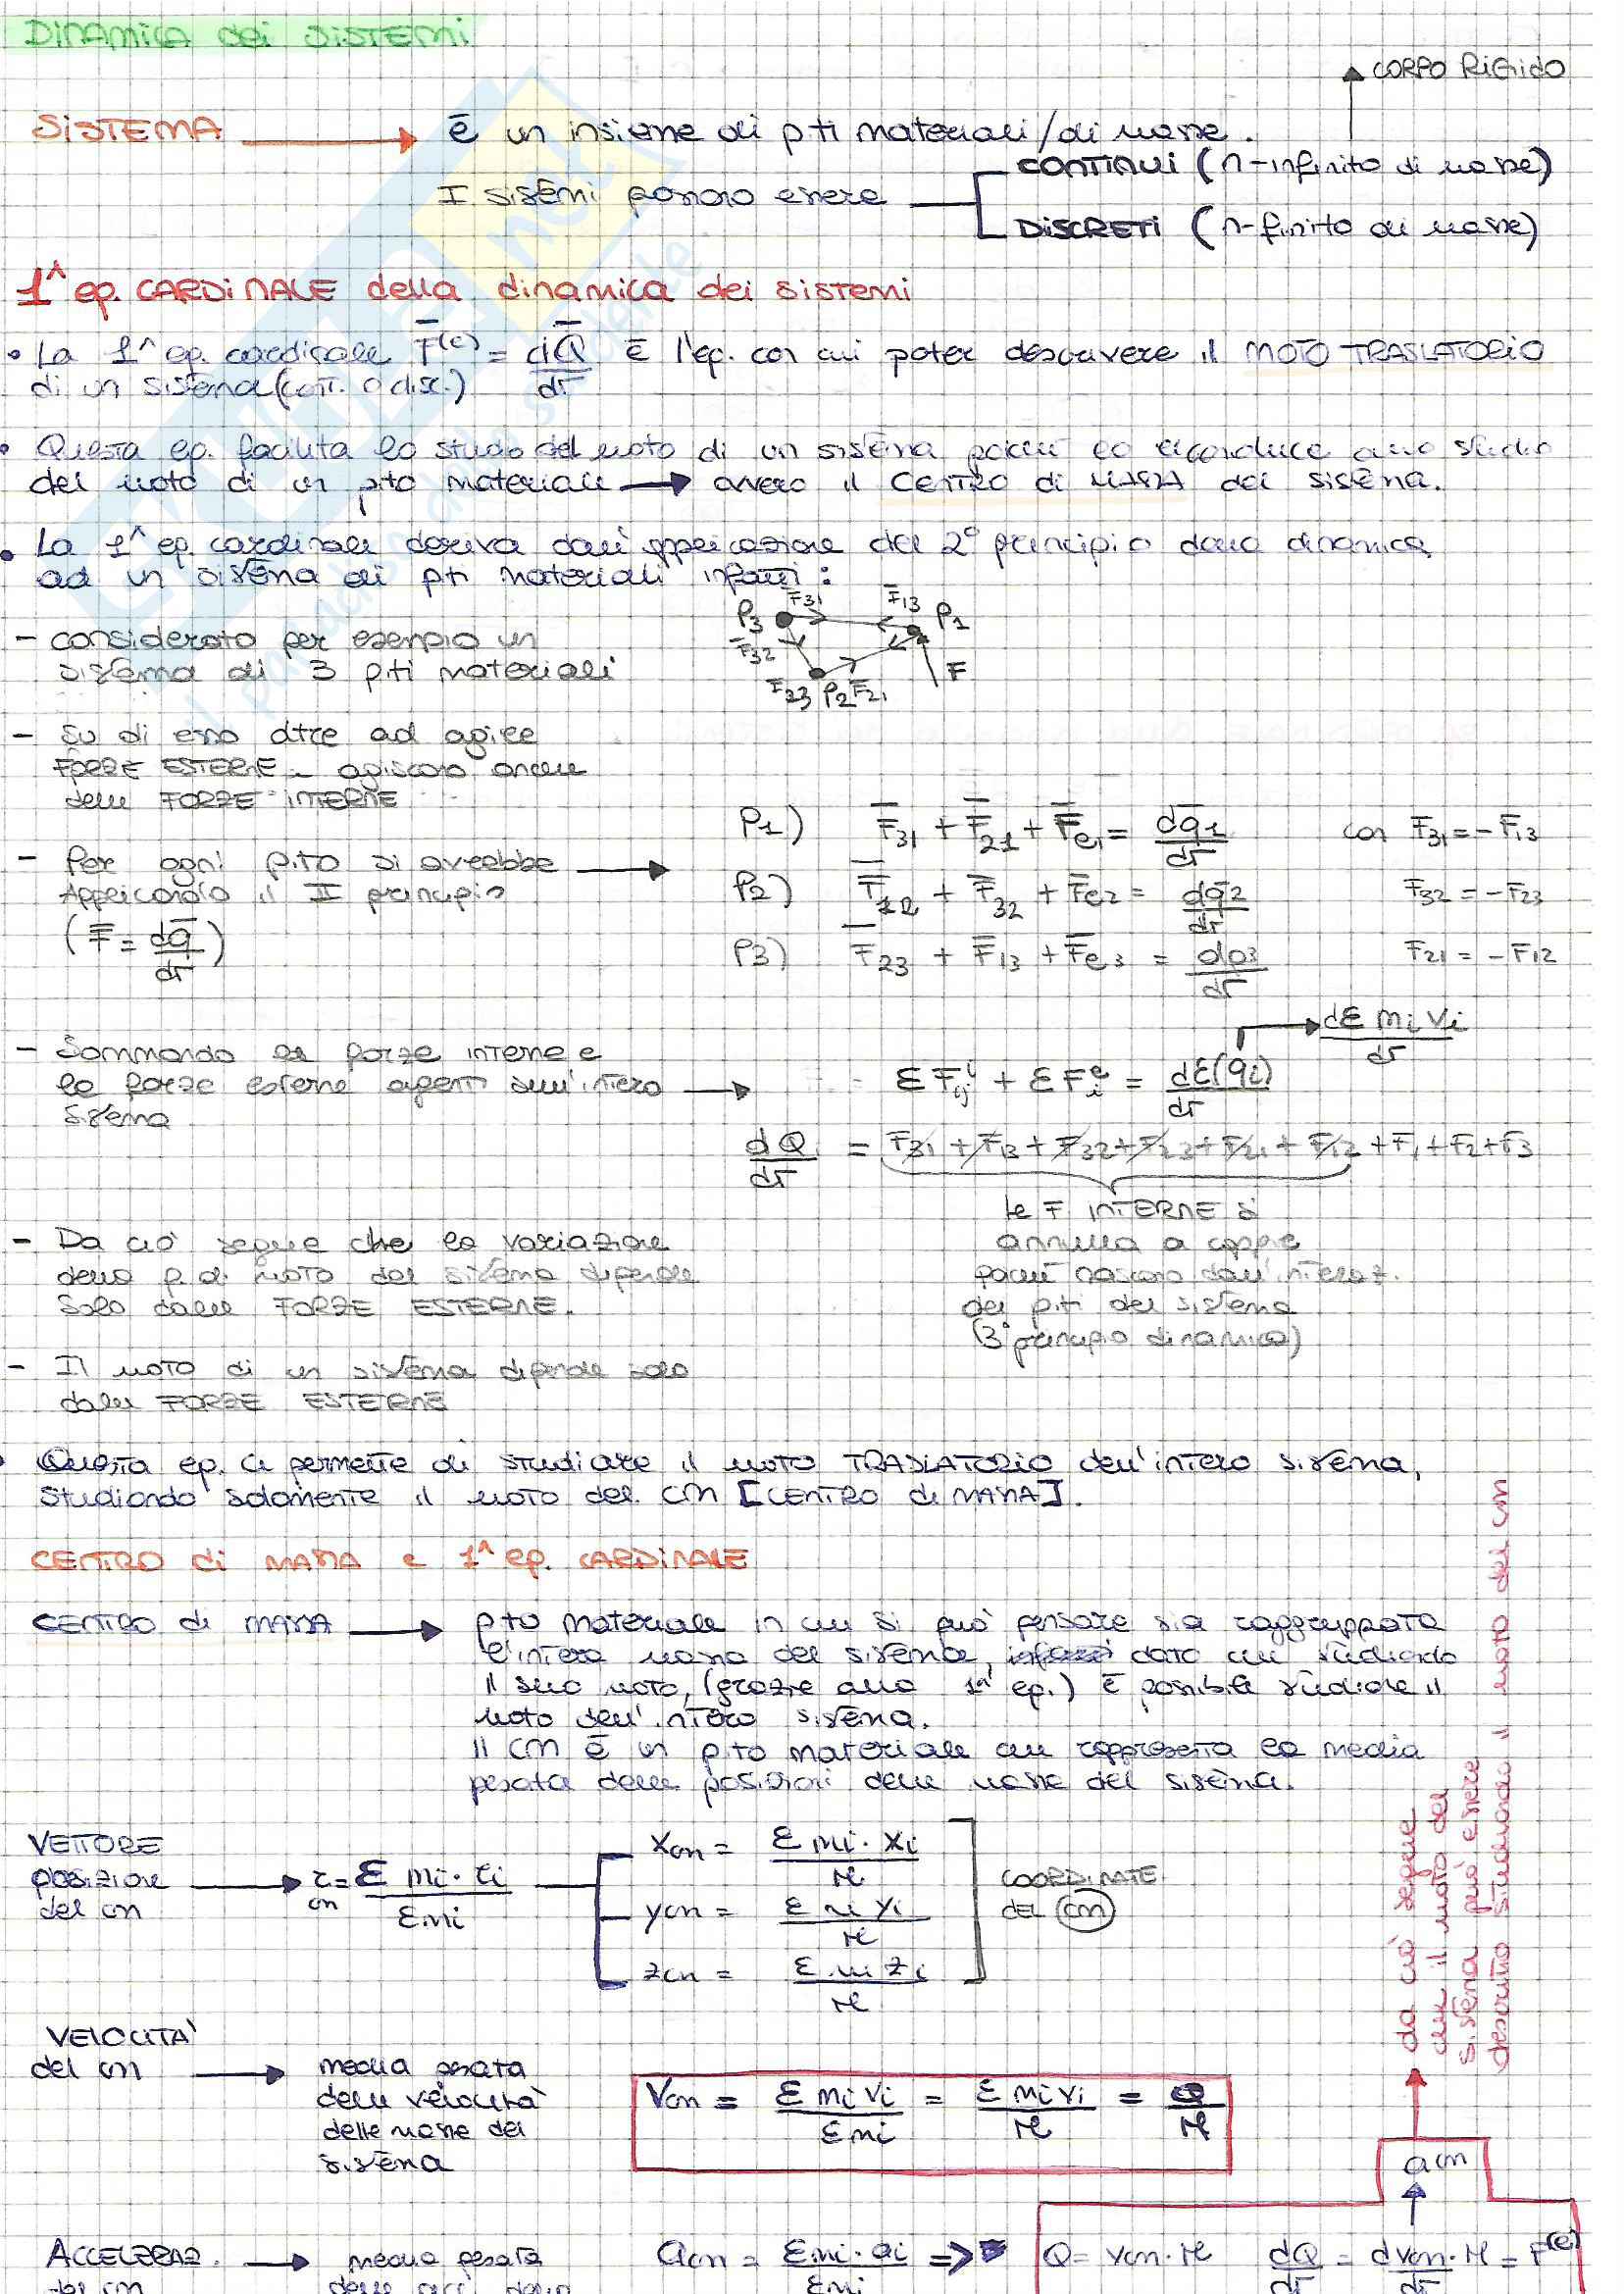 DINAMICA dei SISTEMI
CORPO RIGIDO
SISTEMA → è un insieme di p.ti materiali/di masse.
I sistemi possono essere
CONTINUI (n-infinito di masse)
DISCRETI (n-finito di masse)
1^ eq. CARDINALE della dinamica dei sistemi
• La 1^ eq. cardinale F̄^(e) = dQ̄/dt è l'eq. con cui poter descrivere il MOTO TRASLATORIO
di un sistema (con. o disc.)
• Questa eq. facilita lo studio del moto di un sistema poiché lo riconduce allo studio
del moto di un p.to materiale → ovvero il CENTRO di MASSA del sistema.
• La 1^ eq. cardinale deriva dall'applicazione del 2° principio della dinamica
ad un sistema di p.ti materiali infatti:
- considerato per esempio un
sistema di 3 p.ti materiali
P3 F̄31 F̄13 P1
F̄32 F
F̄23 P2 F̄21
- Su di esso oltre ad agire
FORZE ESTERNE agiscono anche
delle FORZE INTERNE
- Per ogni p.to si avrebbe →
Applicando il II principio
(F̄ = dq̄/dt)
P1) F̄31 + F̄21 + F̄e1 = dq̄1/dt con F̄31 = -F̄13
P2) F̄12 + F̄32 + F̄e2 = dq̄2/dt F̄32 = -F̄23
P3) F̄23 + F̄13 + F̄e3 = dq3/dt F̄21 = -F̄12
- Sommando le forze interne e
le forze esterne agenti sull'intero →
sistema
dΣ mi vi/dt
Σ Fij^i + Σ Fi^e = dΣ(qi)/dt
dQ/dt = F̄31 + F̄13 + F̄32 + F̄23 + F̄21 + F̄12 + F̄1 + F̄2 + F̄3
le F INTERNE si
annulla a coppie
poiché nascono dall'interaz.
dei p.ti del sistema
(3° principio dinamica)
- Da ciò segue che la variazione
della q. di moto del sistema dipende
solo dalle FORZE ESTERNE.
- Il moto di un sistema dipende solo
dalle FORZE ESTERNE
• Questa eq. ci permette di studiare il moto TRASLATORIO dell'intero sistema,
studiando solamente il moto del CM [CENTRO di MASSA].
CENTRO di MASSA e 1^ eq. CARDINALE
CENTRO di MASSA → p.to materiale in cui si può pensare sia raggruppata
l'intera massa del sistema, infatti dato che studiando
il suo moto, (grazie alla 1^ eq.) è possibile studiare il
moto dell'intero sistema.
Il CM è un p.to materiale che rappresenta la media
pesata delle posizioni delle masse del sistema.
VETTORE
posizione
del cm
→ r cm = Σ mi · ri / Σmi
xcm = Σ mi · xi / M
ycm = Σ mi yi / M
zcm = Σ mi zi / M
COORDINATE
DEL cm
VELOCITA'
del cm →
media pesata
delle velocità
delle masse del
sistema
Vcm = Σ mi vi / Σ mi = Σ mi vi / M = Q / M
da ciò segue
che il moto del
sistema può essere
descritto studiando il moto del cm
acm
ACCELERAZ. → media pesata
del cm
delle acc. delle
acm = Σmi · ai / Σmi =>
Q = vcm · M dQ/dt = dvcm/dt · M = F^(e)